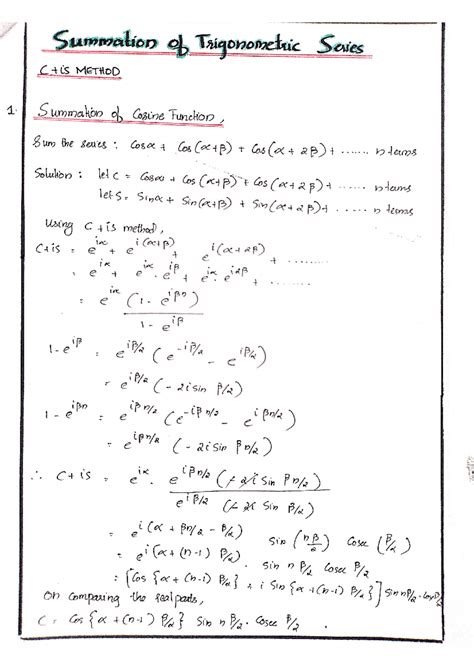 Summation of Trigonometric Series
C+iS METHOD
1. Summation of Cosine Function,
Sum the series : Cosα + Cos(α+β) + Cos(α+2β) + ...... n terms
Solution : let C = Cosα + Cos(α+β) + Cos(α+2β) + ...... n terms
let S = Sinα + Sin(α+β) + Sin(α+2β) + ...... n terms
Using C+is method,
C+is = e^{iα} + e^{i(α+β)} + e^{i(α+2β)} + ......
= e^{iα} + e^{iα}.e^{iβ} + e^{iα}.e^{i2β} + ......
= e^{iα} (1 - e^{iβn}) / 1 - e^{iβ}
1-e^{iβ} = e^{iβ/2} (e^{-iβ/2} - e^{iβ/2})
= e^{iβ/2} (-2i sin β/2)
1-e^{iβn} = e^{iβn/2} (e^{-iβn/2} - e^{iβn/2})
= e^{iβn/2} (-2i sin βn/2)
∴ C+is = e^{iα}. e^{iβn/2} (-2i Sin βn/2) / e^{iβ/2} (-2i Sin β/2)
= e^{i(α+βn/2-β/2)} sin (nβ/2) Cosec (β/2)
= e^{i(α+(n-1)β/2)}. sin nβ/2 Cosec β/2
= [Cos{α+(n-1)β/2} + i Sin{α+(n-1)β/2}] Sin nβ/2. Cosec β/2
On comparing the real parts,
C = Cos{α+(n-1)β/2} Sin nβ/2. Cosec β/2.